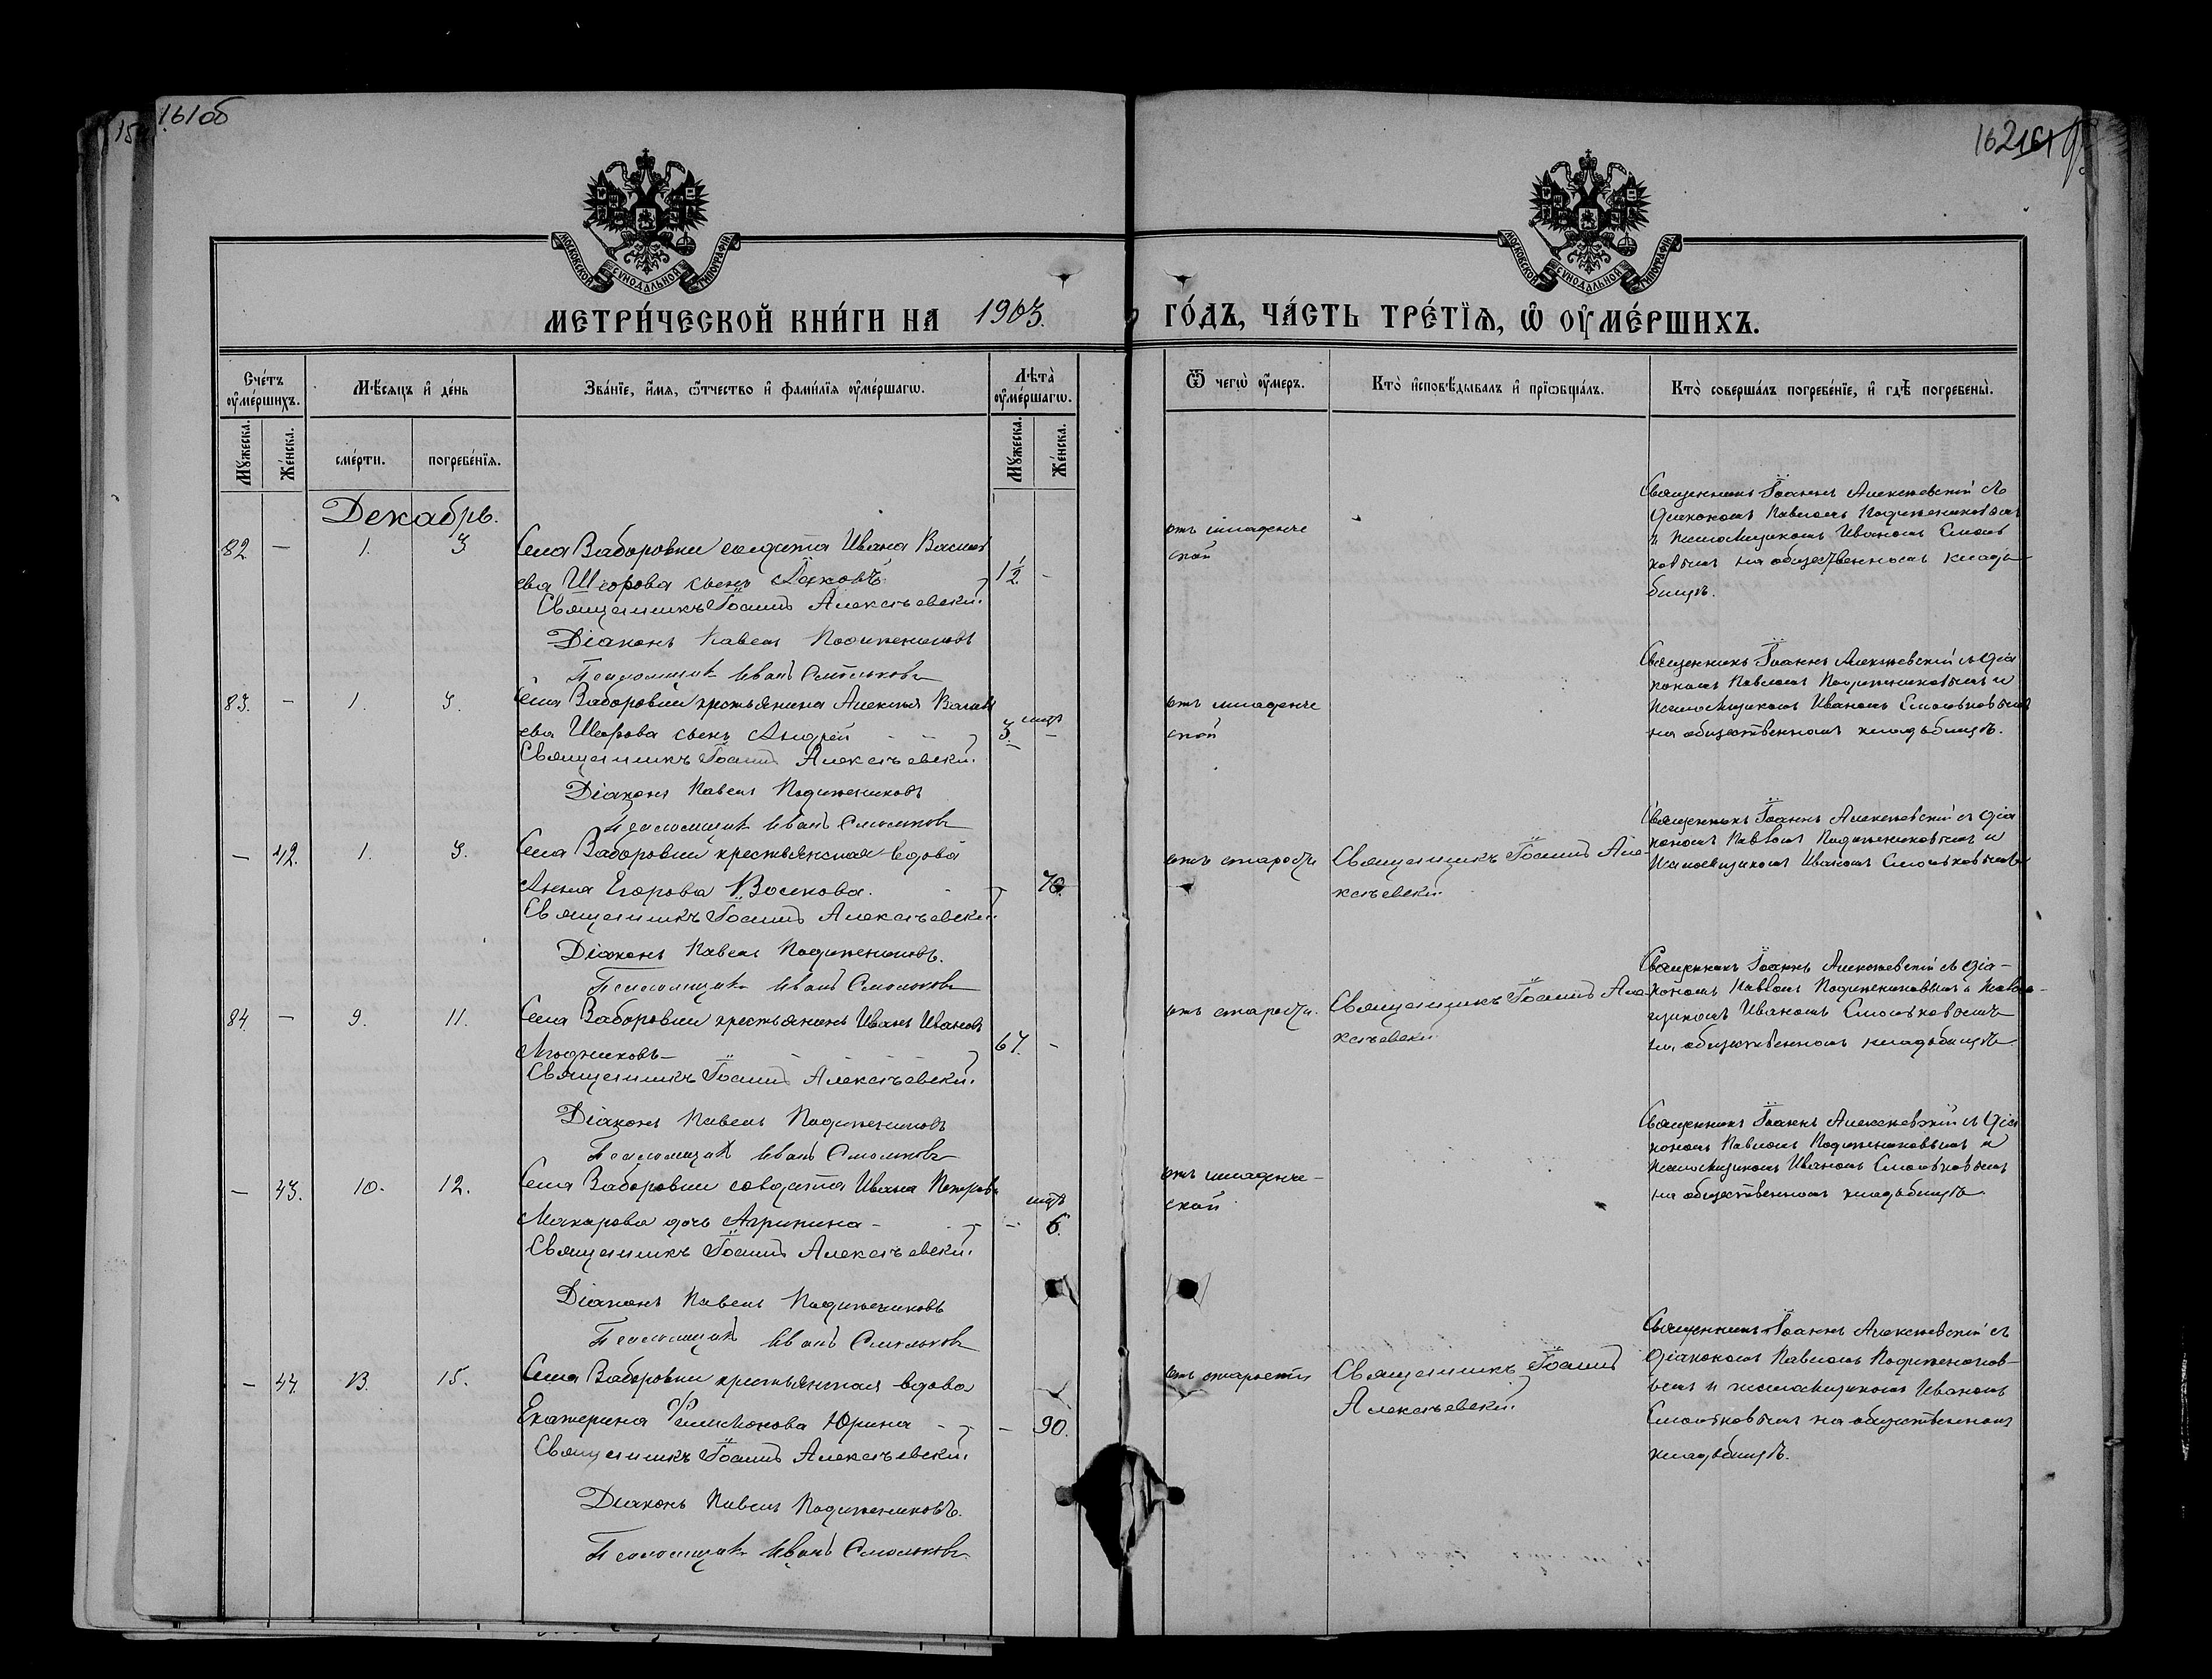 161об
162 161
МОСКОВСКОЙ СѴНОДАЛЬНОЙ ТИПОГРАФІИ
МОСКОВСКОЙ СѴНОДАЛЬНОЙ ТИПОГРАФІИ
МЕТРИ́ЧЕСКОЙ КНИ́ГИ НА 1903. ГО́ДЪ, ЧА́СТЬ ТРЕ́ТІѦ, Ѡ҆ ОУ҆МЕ́РШИХЪ.
Сче́тъ оу҆ме́ршихъ.
Мꙋ́жеска.
Же́нска.
Мѣ́сѧцъ и҆ де́нь
сме́рти.
погребе́нїѧ.
Зва́нїе, и҆́мѧ, ѻ҆́тчество и҆ фами́лїѧ оу҆ме́ршагѡ.
Лѣ́та оу҆ме́ршагѡ.
Мꙋ́жеска.
Же́нска.
Ѿ чегѡ̀ оу҆́меръ.
Кто̀ и҆сповѣ́дывалъ и҆ прїѡбща́лъ.
Кто̀ соверша́лъ погребе́нїе, и҆ гдѣ̀ погребены̀.
Декабрь.
82 — 1. 3
Села Заборовки солдата Ивана Василь
ева Шчорова сынъ Яковъ 1½ -
Священникъ Іоаннъ Алексѣевскій
Діаконъ Павелъ Подитениковъ
Псаломщикъ Иванъ Смольковъ
отъ младенче
ской
Священникъ Іоаннъ Алексѣевскій съ
діакономъ Павломъ Подитениковымъ
и псаломщикомъ Иваномъ Смоль
ковымъ на общественномъ кладъ
бищѣ.
83. - 1. 3.
Села Заборовки крестьянина Алексѣя Василь
ева Шчорова сынъ Андрей 3. мѣд. —
Священникъ Іоаннъ Алексѣевскій
Діаконъ Павелъ Подитениковъ
Псаломщикъ Иванъ Смольковъ
отъ младенче
ской
Священникъ Іоаннъ Алексѣевскій съ діа
кономъ Павломъ Подитениковымъ и
псаломщикомъ Иваномъ Смольковымъ
на общественномъ кладъбищѣ.
— 42. 1. 3.
Села Заборовки крестьянская вдова
Анна Егорова Воснова. 70.
Священникъ Іоаннъ Алексѣевскій
Діаконъ Павелъ Подитениковъ.
Псаломщикъ Иванъ Смольковъ
отъ старости
Священникъ Іоаннъ Але-
ксѣевскій
Священникъ Іоаннъ Алексѣевскій съ діа
кономъ Павломъ Подитениковымъ и
псаломщикомъ Иваномъ Смольковымъ
84. — 9. 11.
Села Заборовки крестьянинъ Иванъ Ивановъ
Ягодниковъ— 67. -
Священникъ Іоаннъ Алексѣевскій
Діаконъ Павелъ Подитениковъ
Псаломщикъ Иванъ Смольковъ
отъ старости.
Священникъ Іоаннъ Але
ксѣевскій
Священникъ Іоаннъ Алексѣевскій съ діа-
кономъ Павломъ Подитениковымъ и псалом-
щикомъ Иваномъ Смольковымъ
на общественномъ кладъбищѣ
— 43. 10. 12.
Села Заборовки солдата Ивана Петрова
Макарова дочь Агрипина - — мѣд. 6.
Священникъ Іоаннъ Алексѣевскій
Діаконъ Павелъ Подитениковъ
Псаломщикъ Иванъ Смольковъ
отъ младенче-
ской
Священникъ Іоаннъ Алексѣевскій съ діа
кономъ Павломъ Подитениковымъ и
псаломщикомъ Иваномъ Смольковымъ
на общественномъ кладъбищѣ
- 44. 13. 15.
Села Заборовки крестьянская вдова
Екатерина Филимонова Юрина - — 90.
Священникъ Іоаннъ Алексѣевскій
Діаконъ Павелъ Подитениковъ.
Псаломщикъ Иванъ Смольковъ
отъ старости
Священникъ Іоаннъ
Алексѣевскій
Священникъ Іоаннъ Алексѣевскій съ
діакономъ Павломъ Подитеников-
ымъ и псаломщикомъ Иваномъ
Смольковымъ на общественномъ
кладъбищѣ.